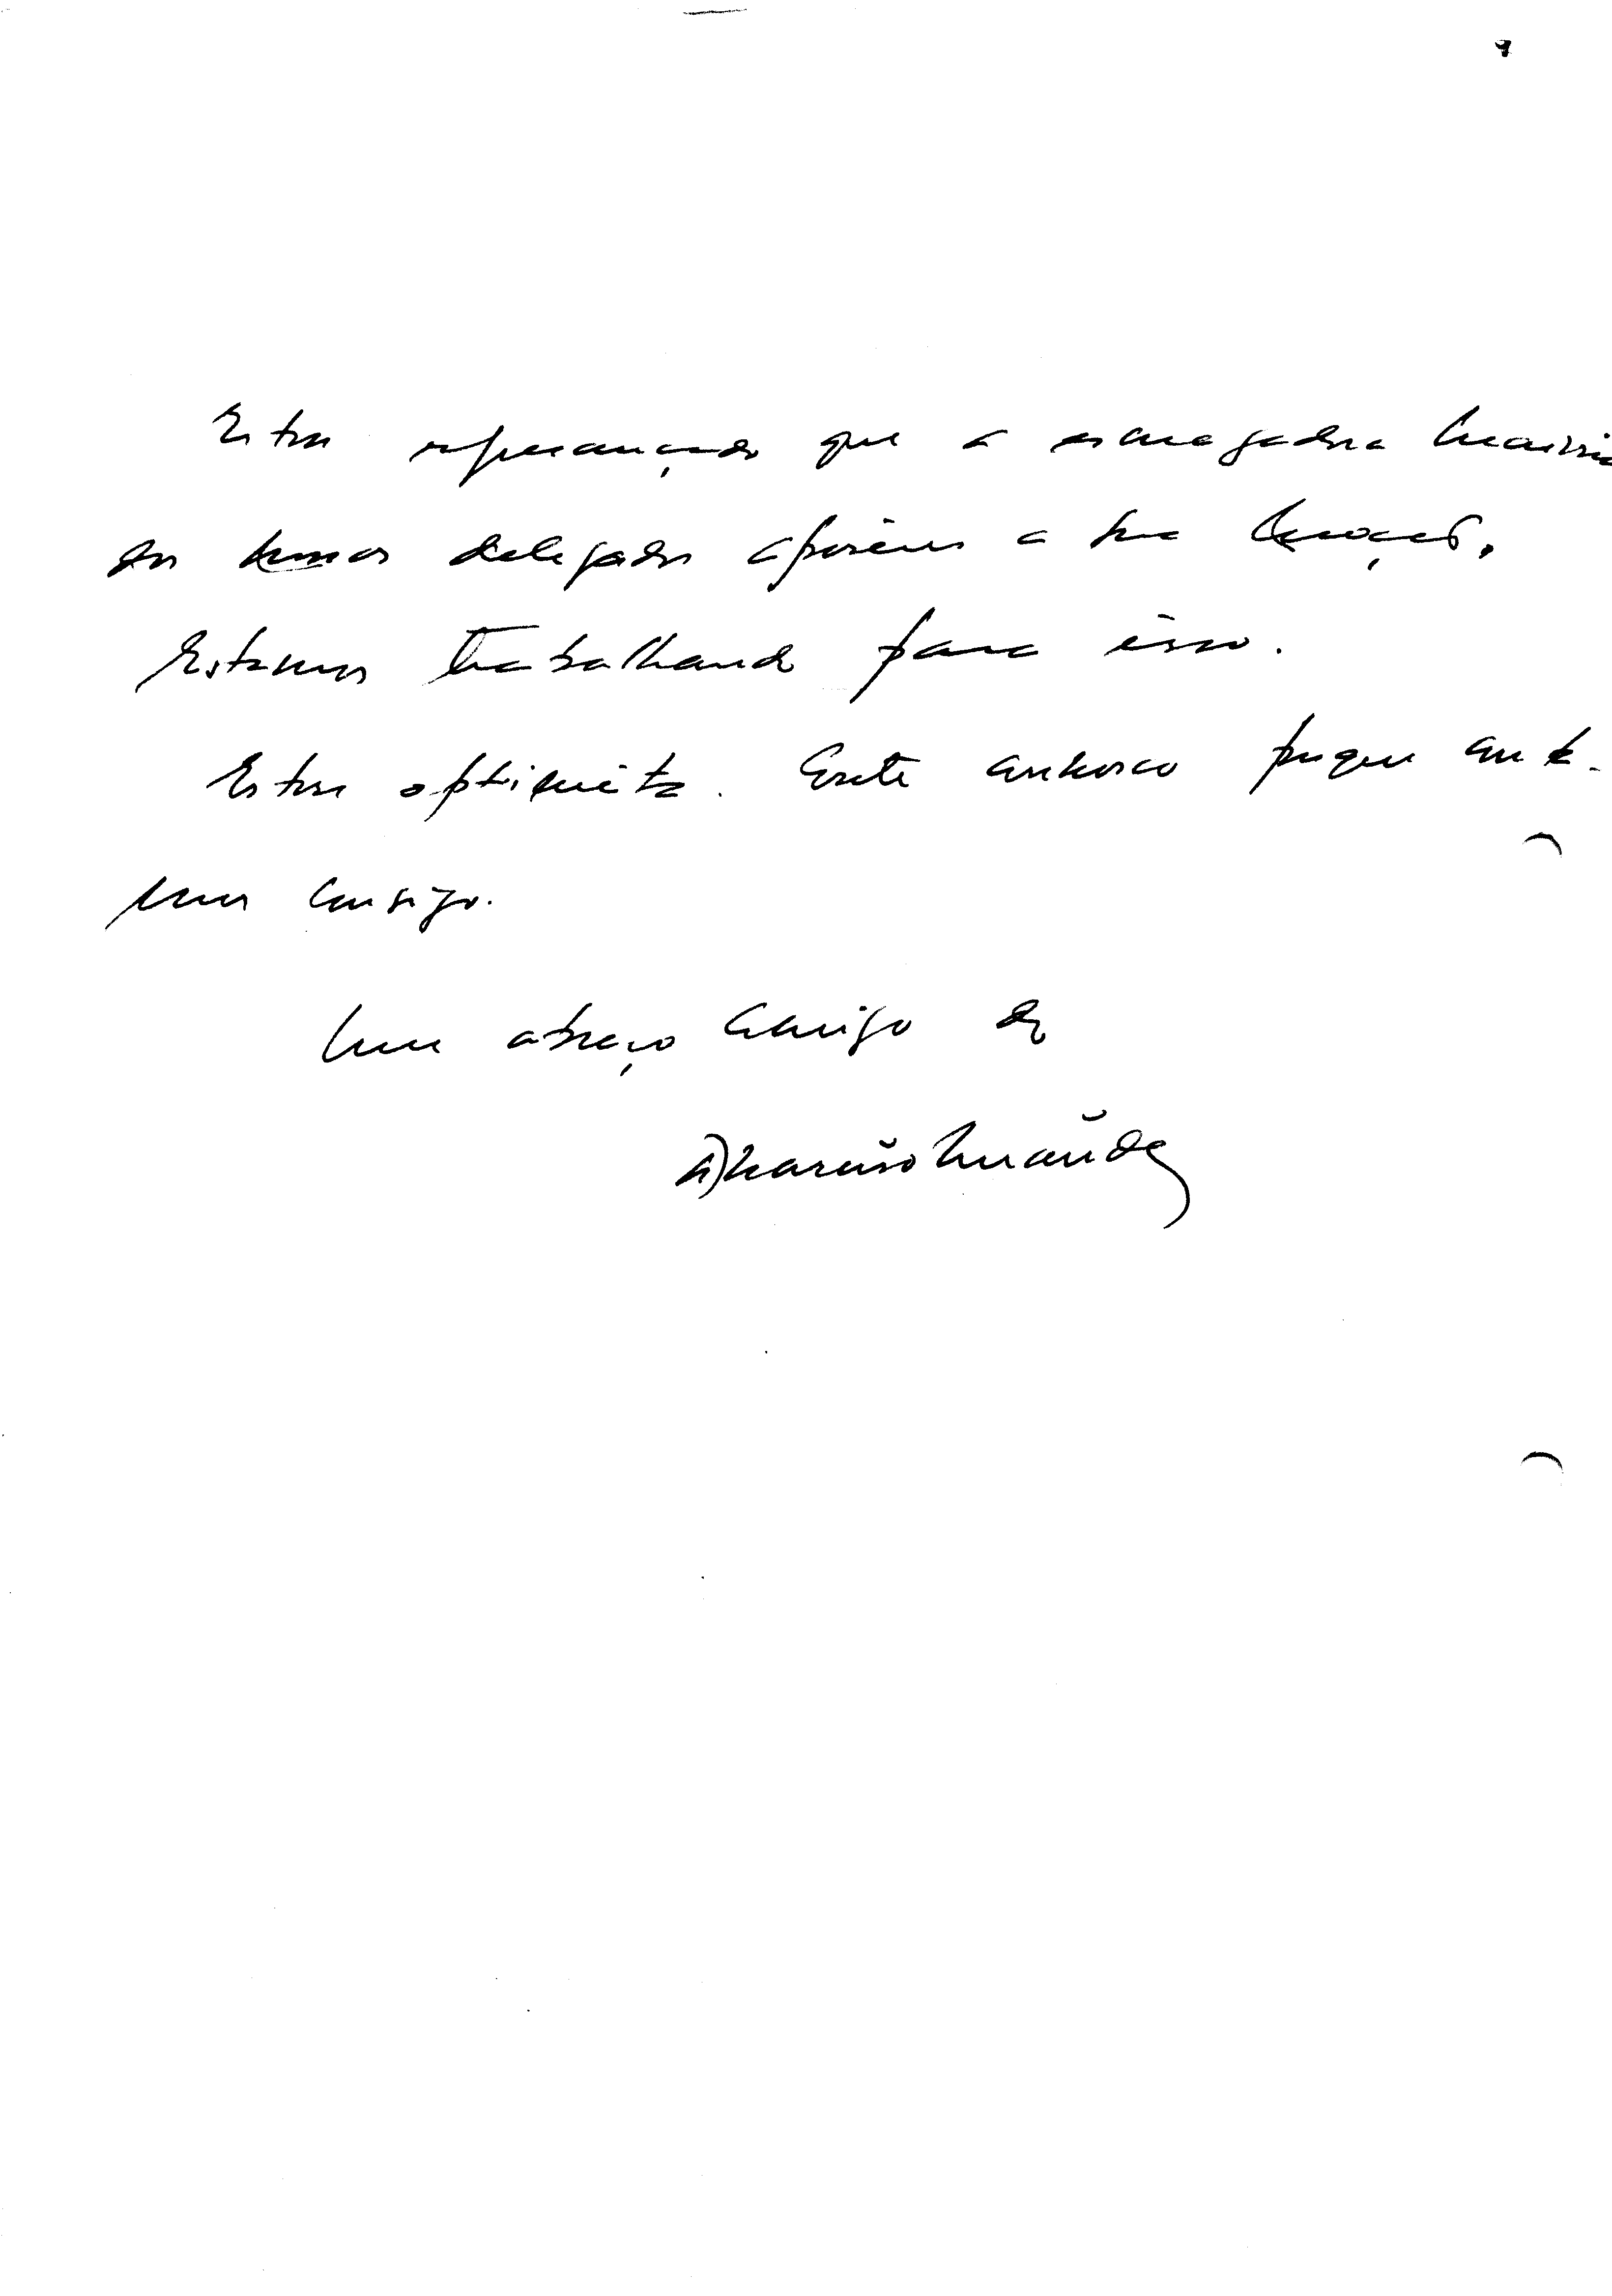 Estou esperançado que a esmagadora maioria
dos nossos delegados apoiem a sua moção.
Estamos trabalhando para isso.
Estou optimista. Conte connosco porque conta-
mos consigo.
Um abraço amigo de